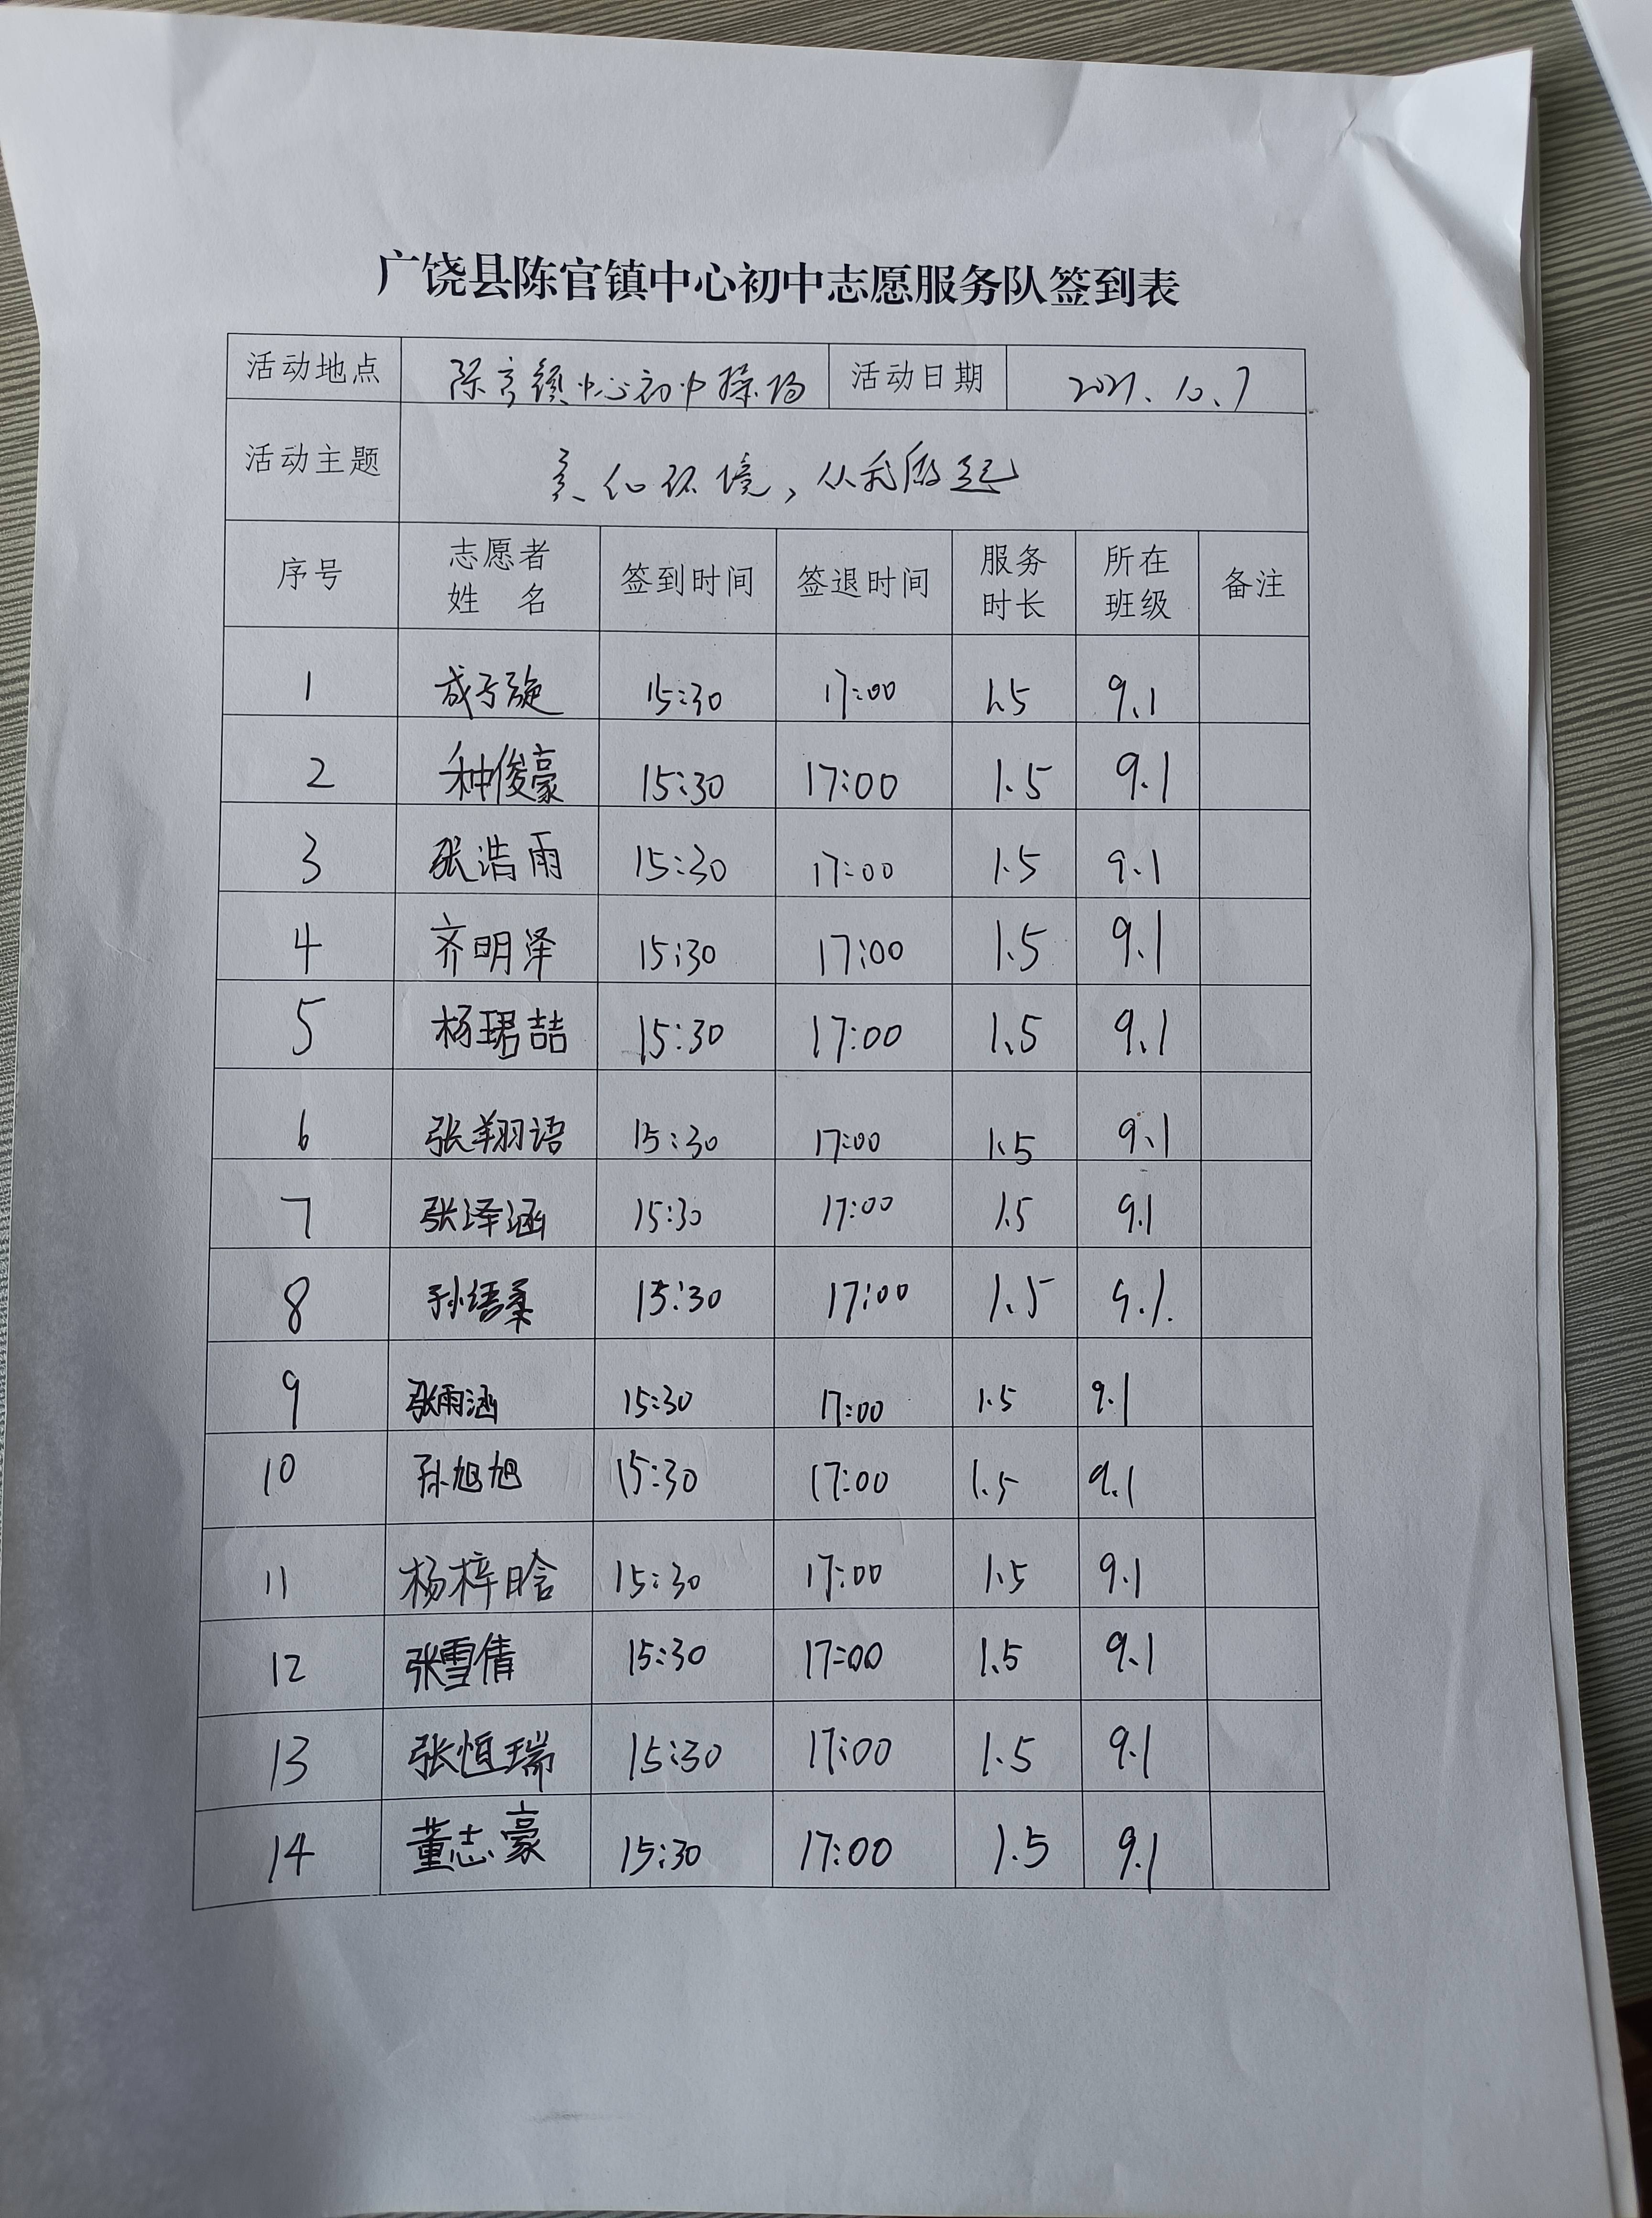 广饶县陈官镇中心初中志愿服务队签到表
活动地点 陈官镇中心初中操场 活动日期 2021.10.7
活动主题 美化环境，从我做起
序号 志愿者姓名 签到时间 签退时间 服务时长 所在班级 备注
1 成子旋 15:30 17:00 1.5 9.1
2 种俊豪 15:30 17:00 1.5 9.1
3 张浩雨 15:30 17:00 1.5 9.1
4 齐明泽 15:30 17:00 1.5 9.1
5 杨珺喆 15:30 17:00 1.5 9.1
6 张翔语 15:30 17:00 1.5 9.1
7 张泽涵 15:30 17:00 1.5 9.1
8 15:30 17:00 1.5 9.1
9 张雨涵 15:30 17:00 1.5 9.1
10 孙旭旭 15:30 17:00 1.5 9.1
11 杨梓晗 15:30 17:00 1.5 9.1
12 张雪倩 15:30 17:00 1.5 9.1
13 张恒瑞 15:30 17:00 1.5 9.1
14 董志豪 15:30 17:00 1.5 9.1